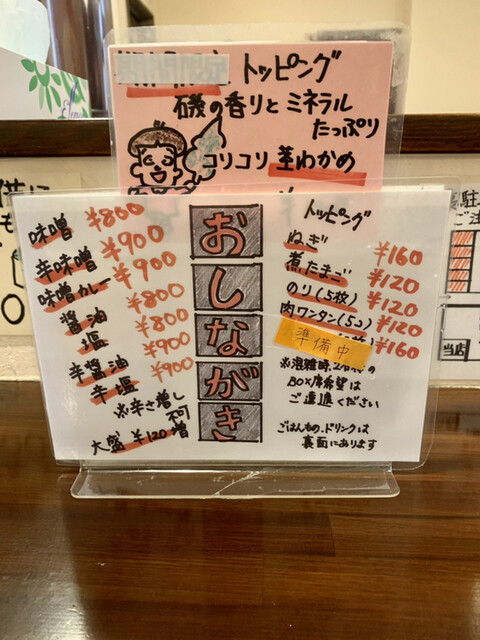 トッピング
磯の香りとミネラル
たっぷり
コリコリ茎わかめ
おしながき
味噌 ¥800
辛味噌 ¥900
味噌カレー ¥900
醤油 ¥800
塩 ¥800
辛醤油 ¥900
辛塩 ¥900
※辛さ増し
不可
大盛 ¥120増
トッピング
ねぎ ¥160
煮たまご ¥120
のり(5枚) ¥120
肉ワンタン(5コ) ¥120
準備中 ¥160
※混雑時、2名様の
BOX席希望は
ご遠慮ください
ごはんもの、ドリンクは
裏面にあります
駐
ご注
当店